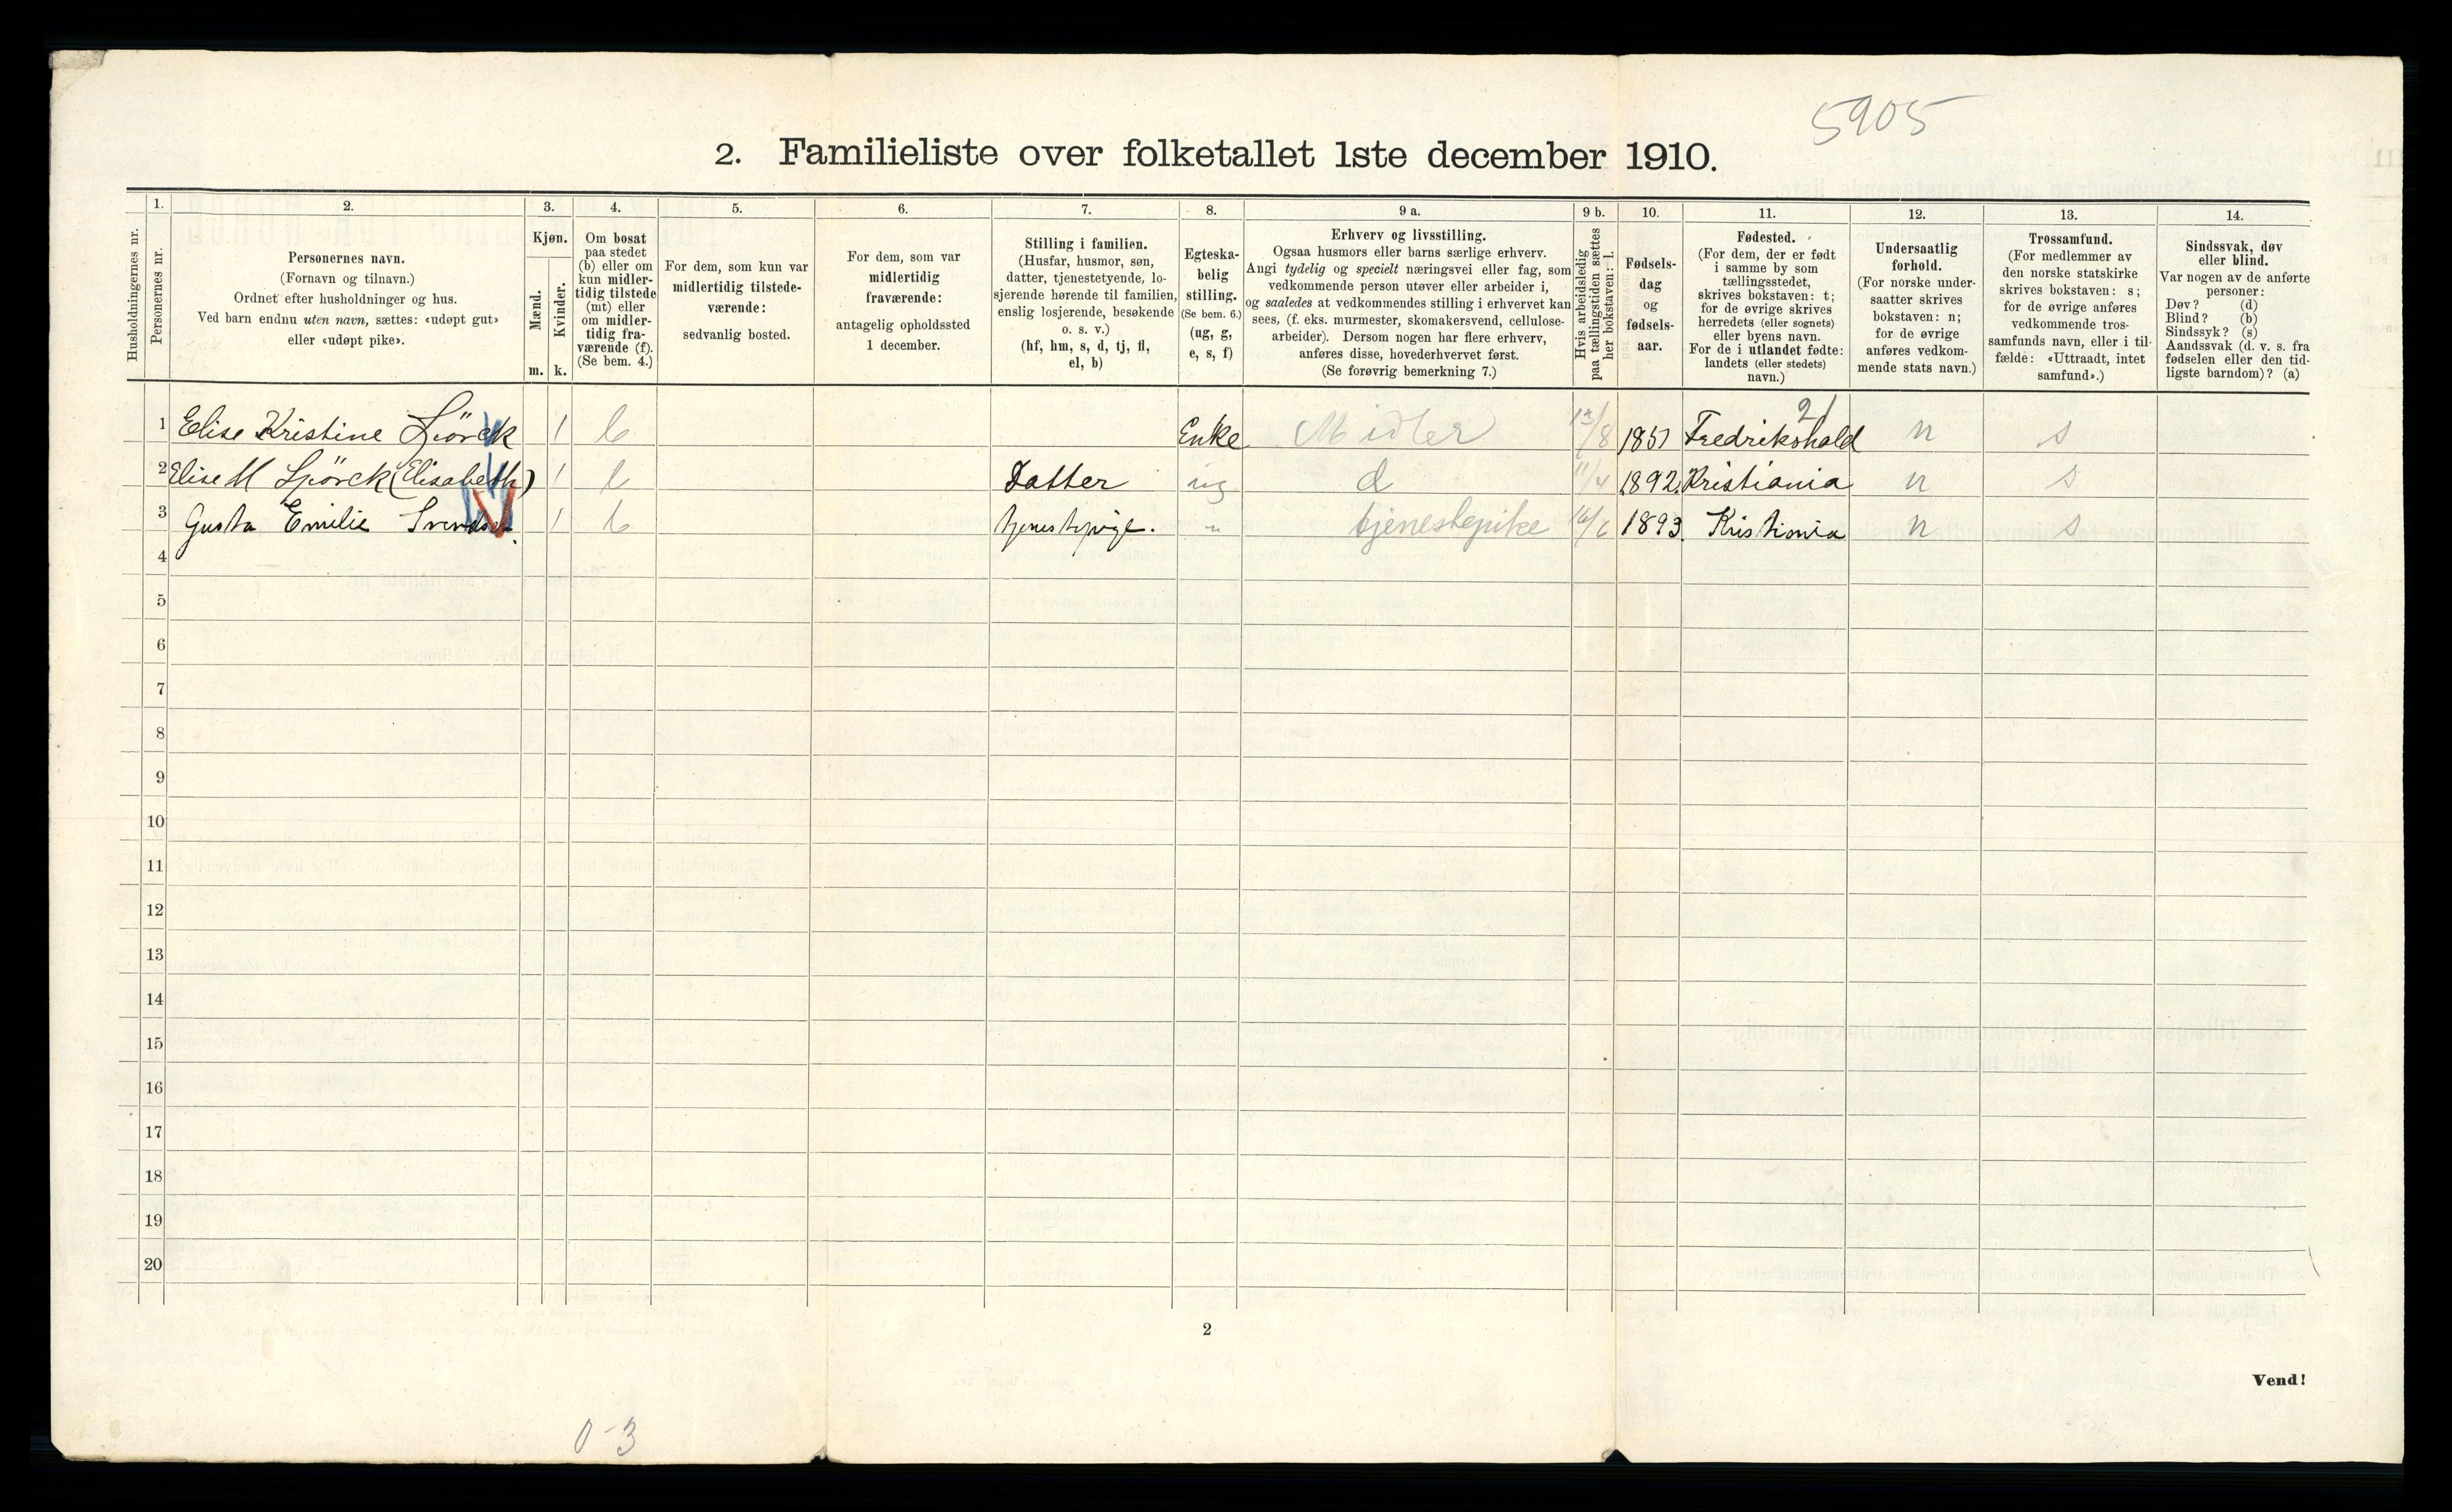 5905
2. Familieliste over folketallet 1ste december 1910.
Husholdningernes nr.
1.
Personernes nr.
2.
Personernes navn.
(Fornavn og tilnavn.)
Ordnet efter husholdninger og hus.
Ved barn endnu uten navn, sættes: «udøpt gut»
eller «udøpt pike».
3.
Kjøn.
Mænd.
m.
Kvinder.
k.
4.
Om bosat
paa stedet
(b) eller om
kun midler-
tidig tilstede
(mt) eller
om midler-
tidig fra-
værende (f).
(Se bem. 4.)
5.
For dem, som kun var
midlertidig tilstede-
værende:
sedvanlig bosted.
6.
For dem, som var
midlertidig
fraværende:
antagelig opholdssted
1 december.
7.
Stilling i familien.
(Husfar, husmor, søn,
datter, tjenestetyende, lo-
sjerende hørende til familien,
enslig losjerende, besøkende
o. s. v.)
(hf, hm, s, d, tj, fl,
el, b)
8.
Egteska-
belig
stilling.
(Se bem. 6.)
(ug, g,
e, s, f)
9 a.
Erhverv og livsstilling.
Ogsaa husmors eller barns særlige erhverv.
Angi tydelig og specielt næringsvei eller fag, som
vedkommende person utøver eller arbeider i,
og saaledes at vedkommendes stilling i erhvervet kan
sees, (f. eks. murmester, skomakersvend, cellulose-
arbeider). Dersom nogen har flere erhverv,
anføres disse, hovederhvervet først.
(Se forøvrig bemerkning 7.)
9 b.
Hvis arbeidsledig
paa tællingstiden sættes
her bokstaven: l.
10.
Fødsels-
dag
og
fødsels-
aar.
11.
Fødested.
(For dem, der er født
i samme by som
tællingsstedet,
skrives bokstaven: t;
for de øvrige skrives
herredets (eller sognets)
eller byens navn.
For de i utlandet fødte:
landets (eller stedets)
navn.)
12.
Undersaatlig
forhold.
(For norske under-
saatter skrives
bokstaven: n;
for de øvrige
anføres vedkom-
mende stats navn.)
13.
Trossamfund.
(For medlemmer av
den norske statskirke
skrives bokstaven: s;
for de øvrige anføres
vedkommende tros-
samfunds navn, eller i til-
fælde: «Uttraadt, intet
samfund».)
14.
Sindssvak, døv
eller blind.
Var nogen av de anførte
personer:
Døv? (d)
Blind? (b)
Sindssyk? (s)
Aandssvak (d. v. s. fra
fødselen eller den tid-
ligste barndom)? (a)
21
1 Elise Kristine 1 b Enke Midler 12/8 1851 Fredrikshald n s
2 Elise M Spörck (Elisabeth) 1 b Datter ug d 11/4 1892. Kristiania n s
3 Gusta Emilie Svendsen. 1 b tjenestepige. " tjenestepike 16/6 1893. Kristiania n s
4
5
6
7
8
9
10
11
12
13
14
15
16
17
18
19
20
2
Vend!
0-3